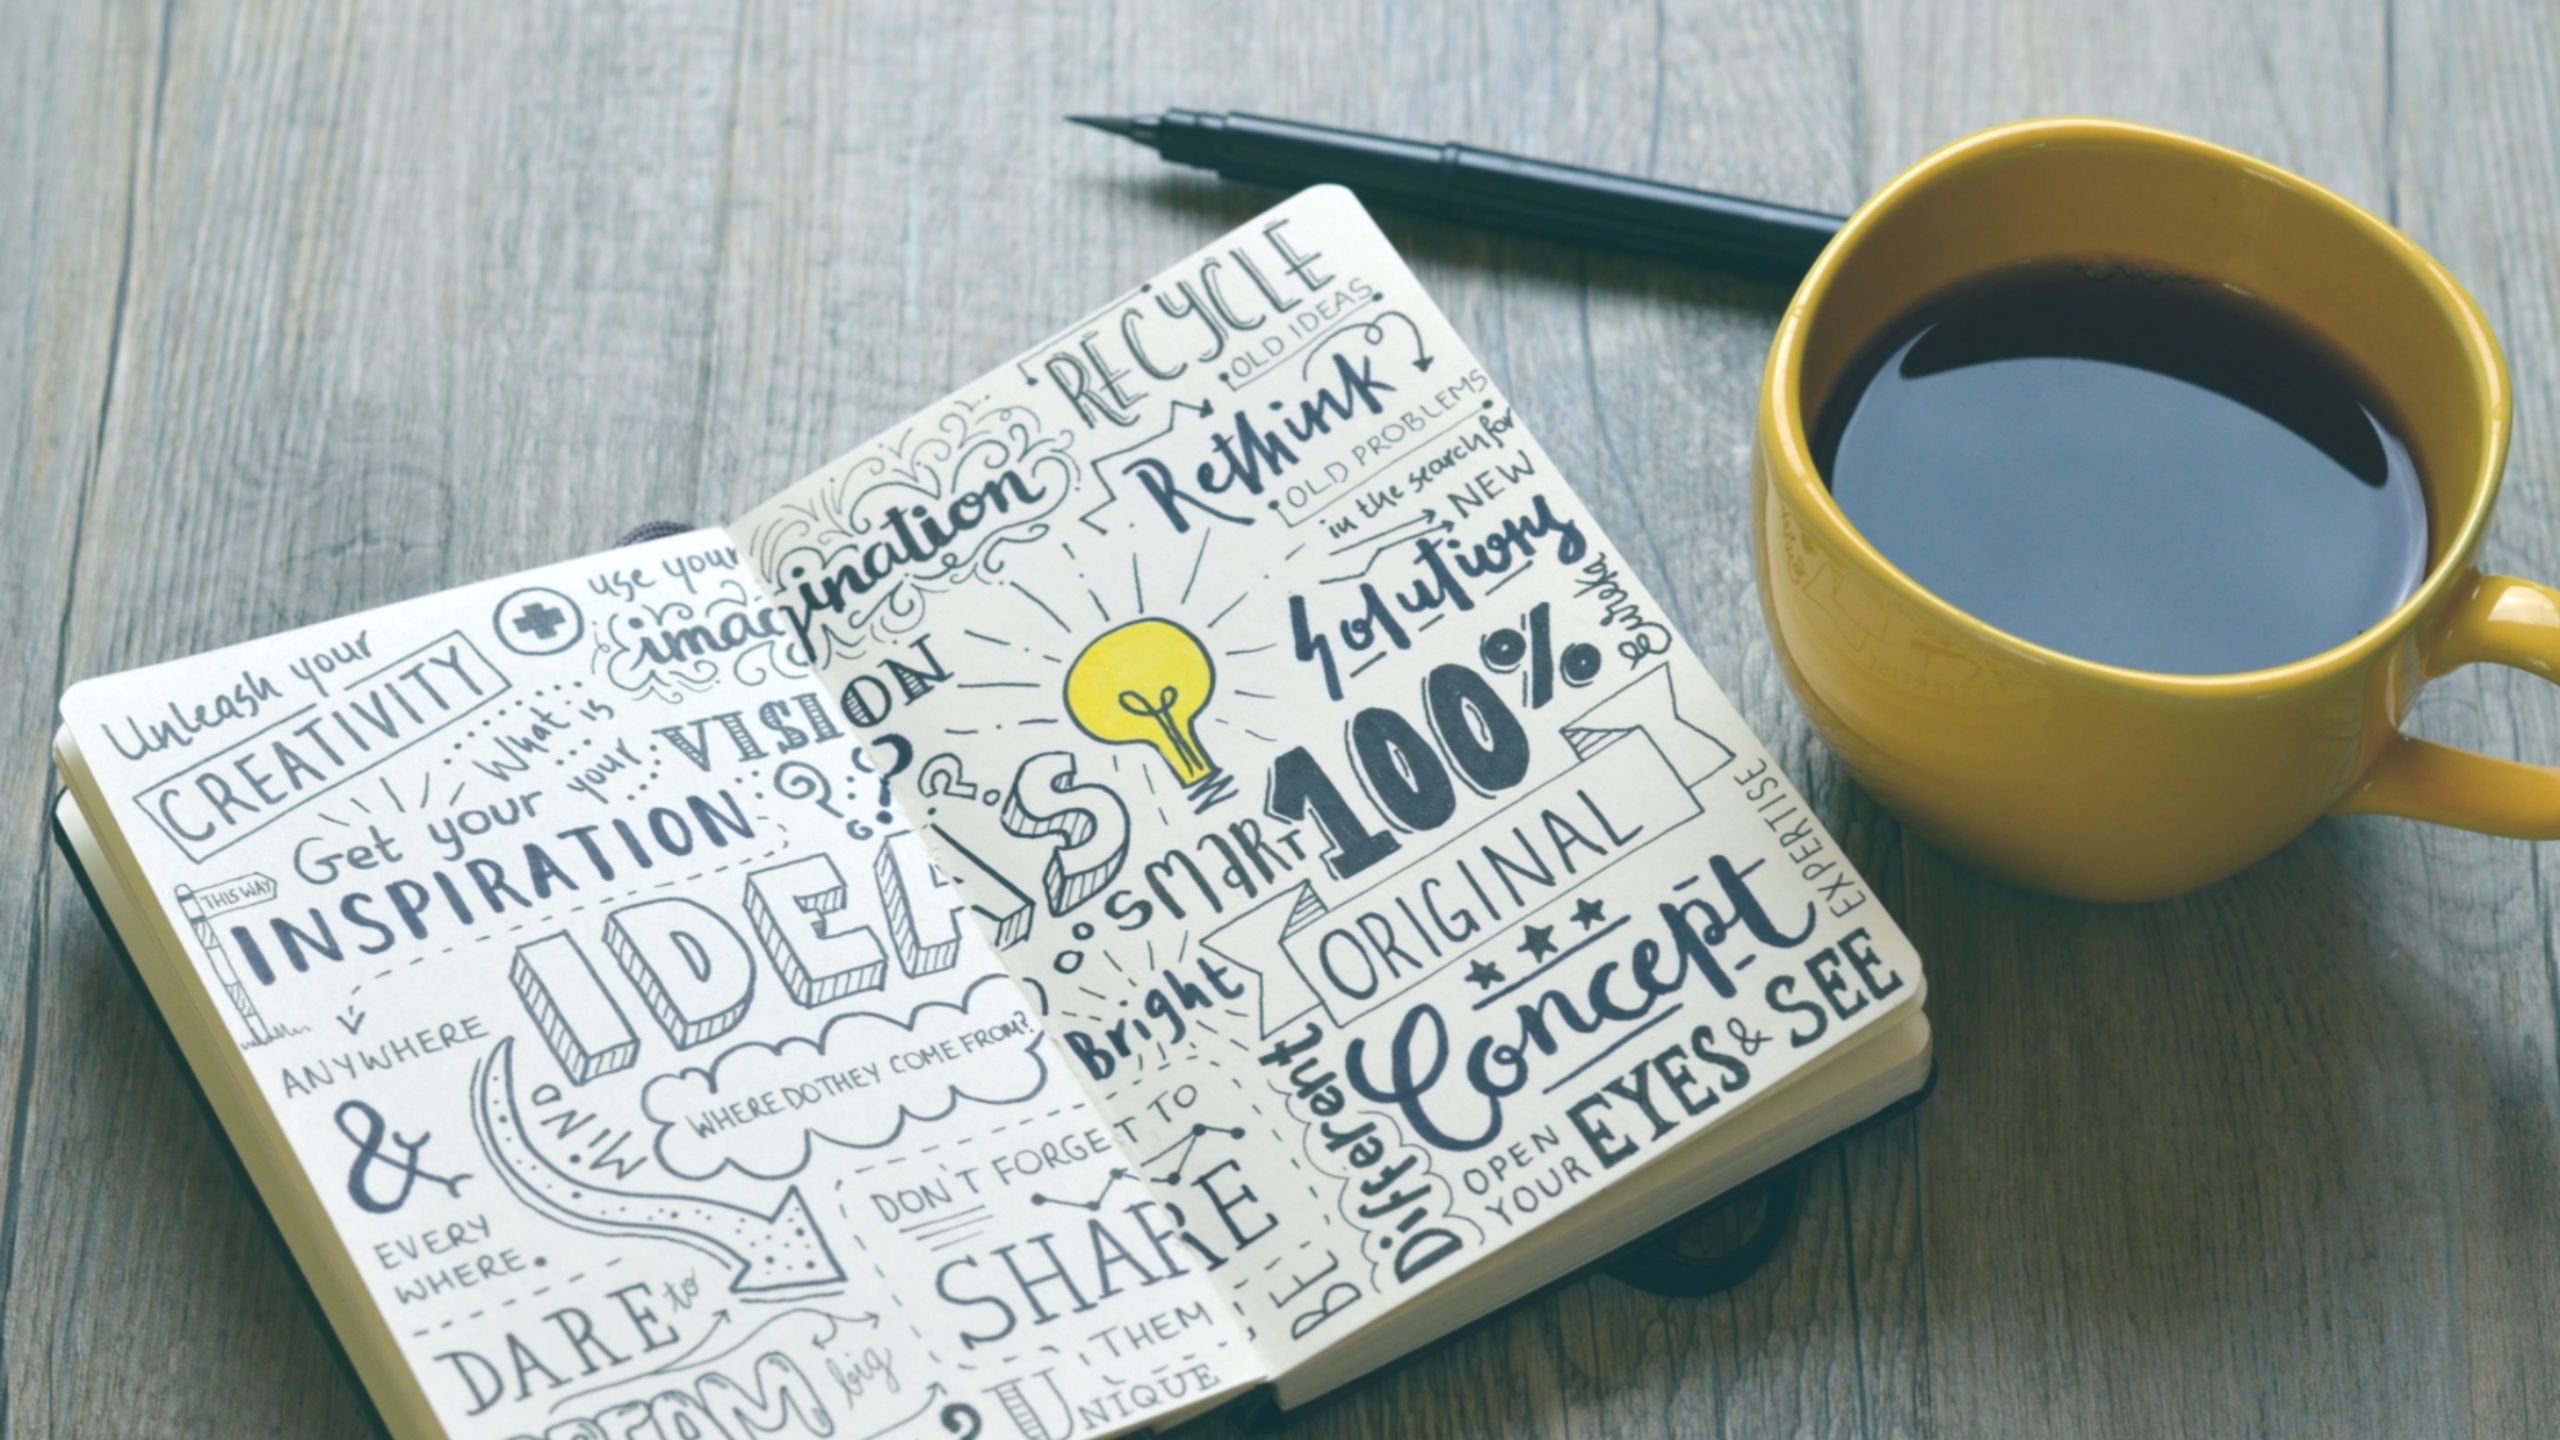 Unleash your
CREATIVITY
use your
imagination
What is
your
VISION
??
Get your
INSPIRATION
THIS WAY
ANYWHERE
&
EVERY
WHERE.
IDEAS
MIND
WHERE DO THEY COME FROM?
DARE to
DREAM big
DON'T FORGET TO
SHARE
THEM
BE
UNIQUE
RECYCLE
OLD IDEAS
Rethink
OLD PROBLEMS
in the search for
NEW
Solutions
Eureka
SMART
100%
ORIGINAL
Concept
EXPERTISE
Bright
Different
OPEN
YOUR EYES & SEE